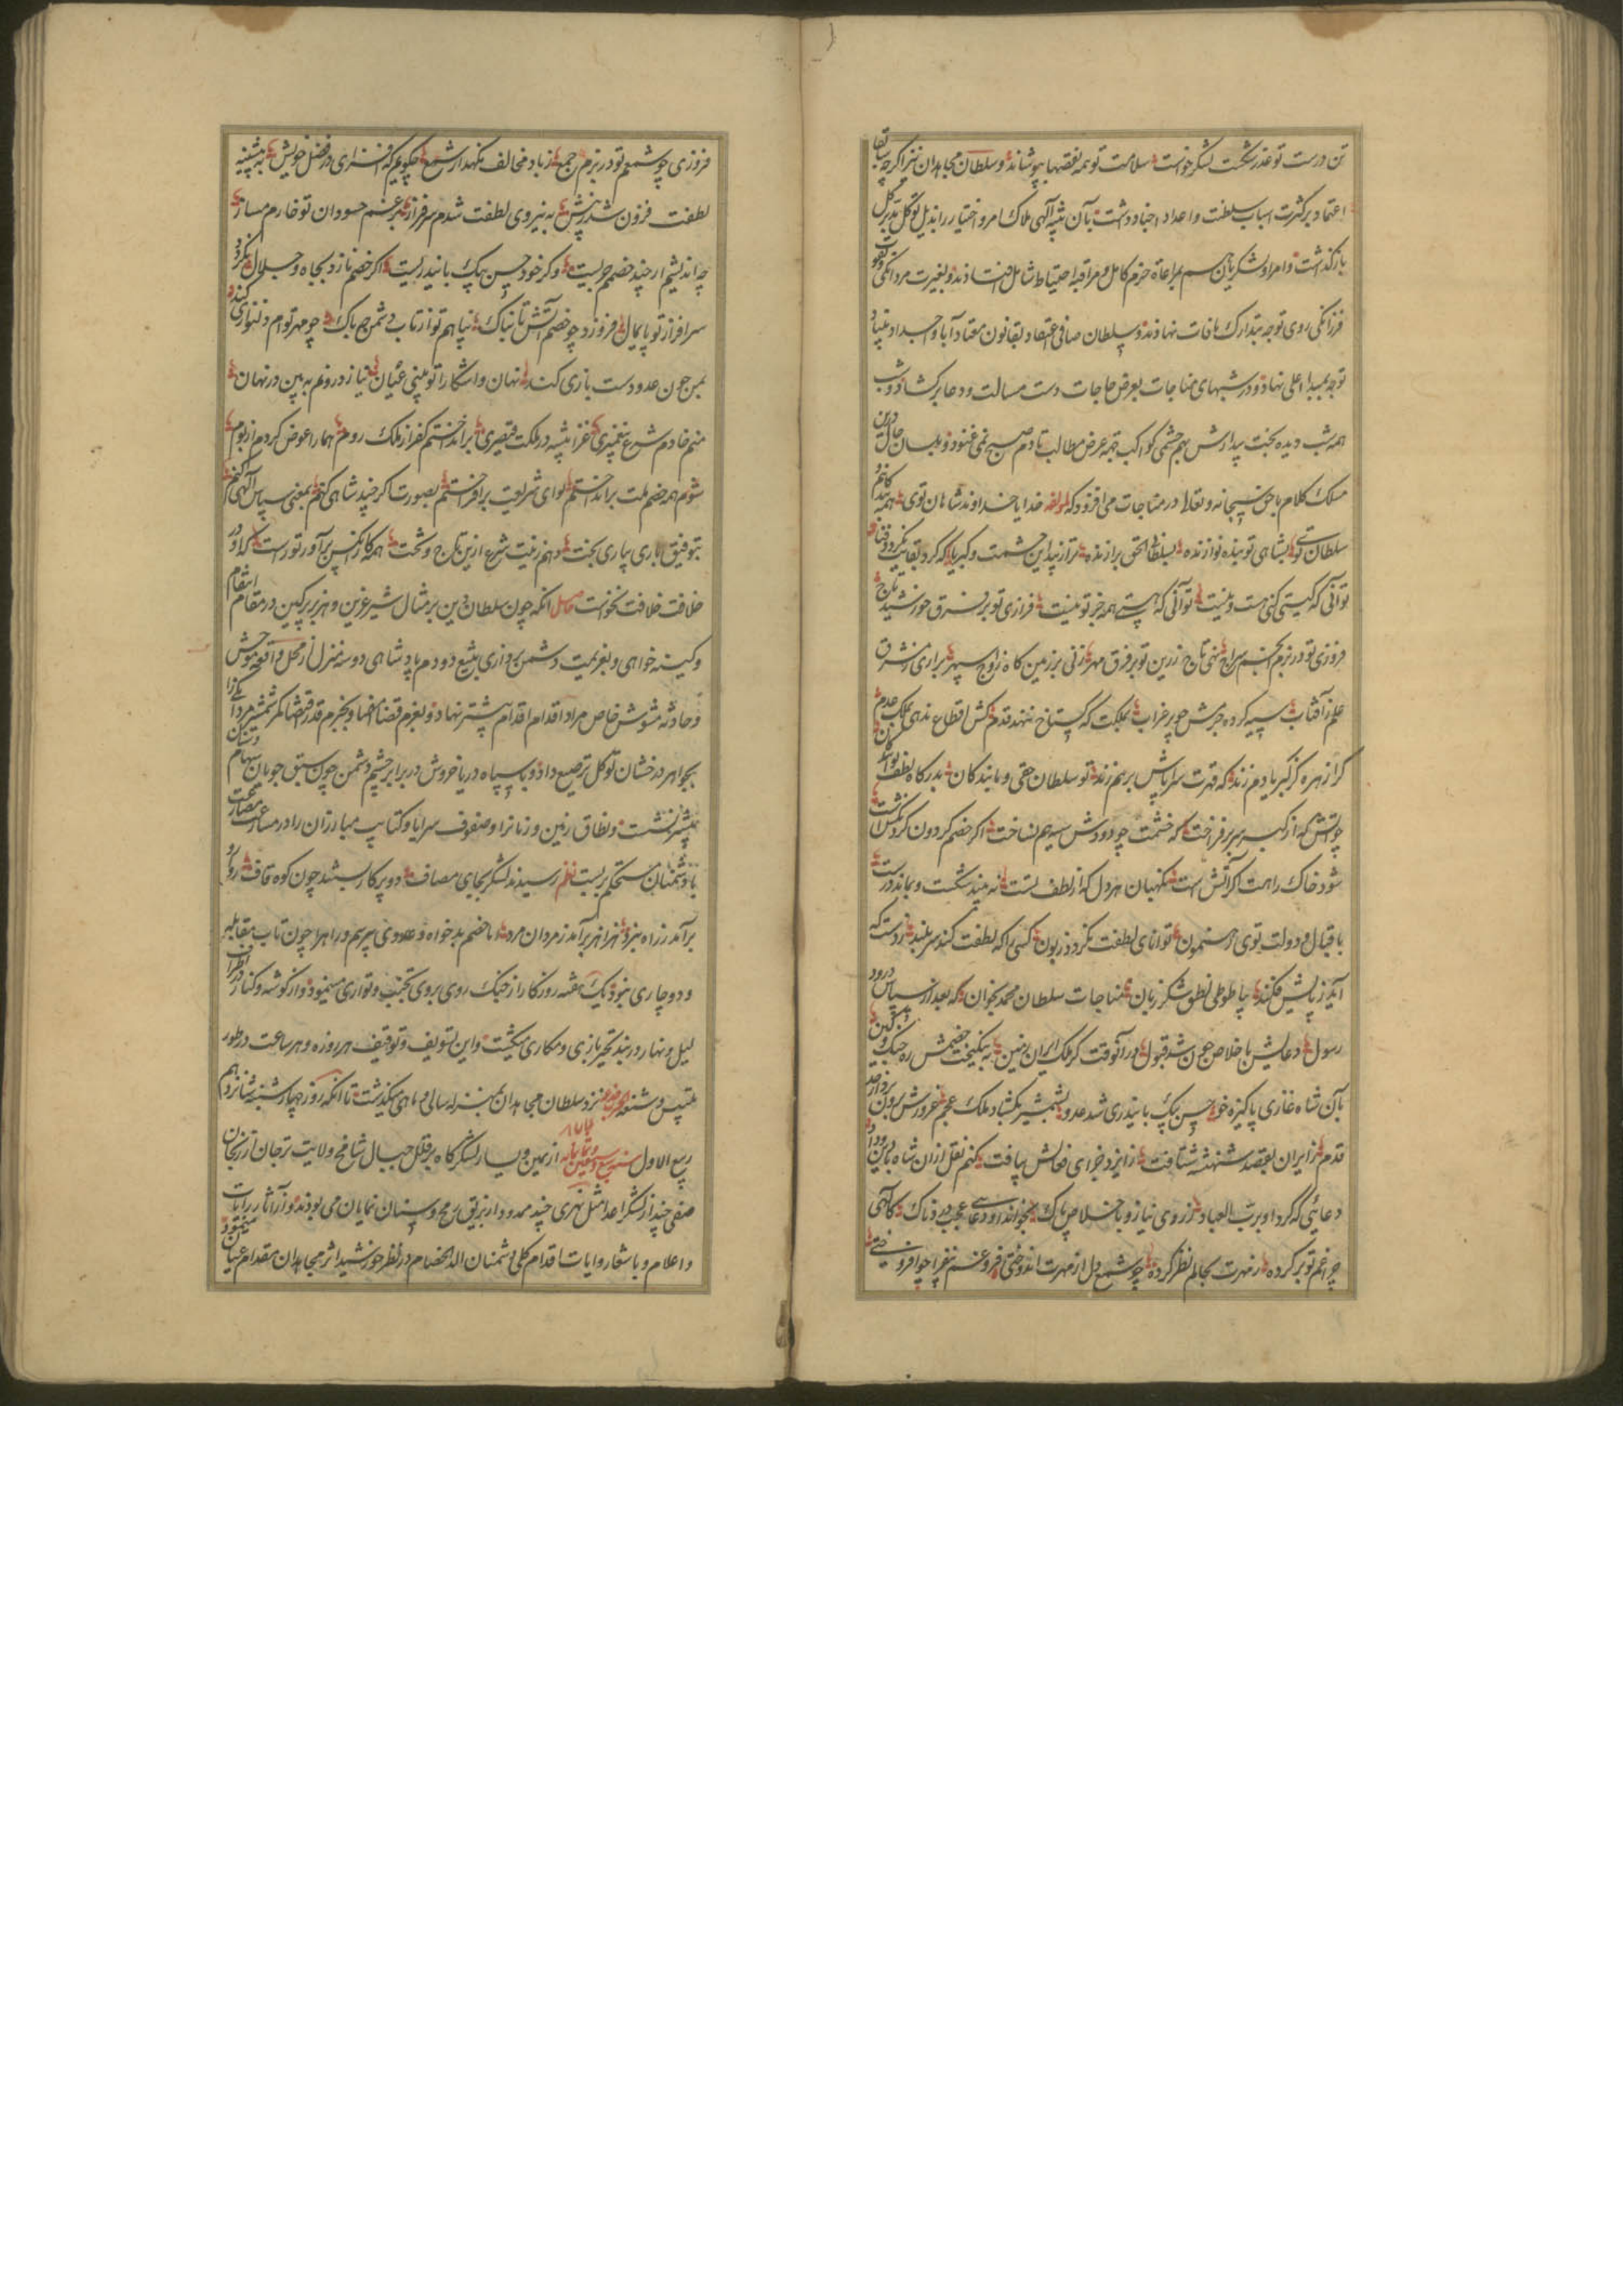 تن درست تو عذر شکست لشکر خواست سلامت تو همه نقصها بپوشاند و سلطان مجاهدان نیز اگر چه سابقا
اعتماد بر کثرت اسباب سلطنت و اعداد اجناد و داشت بآن تنبیه آلهی ملاک امر و اختیار را بذیل توکل
باز گذاشت و امرا و لشکریان هم بمراعاة حزم کامل و مراقبه احتیاط شامل افتادند و بغیرت مردانگی و قوت
فرزانگی روی توجه بتدارک مافات نهادند و سلطان صافی اعتقاد بقانون معتاد آبا و اجداد
توجه بمبداء اعلی نهاد و در شبهای مناجات بعرض حاجات دست مسالت و دعا برکشاد و شب
همه شب دیده بخت بیدارش بهم چشمی کواکب بجهة عرض مطالب تا دم صبح نمی غنود و بلسان حال درین
مسلک کلام با حق سبحانه و تعالی در مناجات می افزود که لمولفه خدایا خداوند شاهان توی همه بنده کانیم
سلطان توی بشاهی تو بنده نوازنده بسلطانی الحق برازنده ترا زیبد این حشمت و کبریا که کرد بقایت نکردد فنا
تو آنی که کیتی کنی هست و نیست تو آنی که هستی همه جز تو نیست فرازی تو بر فرق خورشید تاج
فروزی تو در بزم انجم سراج نهی تاج زرین تو بر فرق مهر زنی بر زمین کاه ز اوج سپهر براری ز مشرق
علم ز آفتاب سیه کرده چترش چو پر غراب بملکت که کستاخ ننهد قدم کش اقطاع ندهی بملک عدم
کرا زهره کز کبریا دم زند که قهرت سراپاش بر هم زند تو سلطان حقی و ما بندکان بدرکاه لطف تو
چو آتش که از کبر سر بر فراخت که خشمت چو دودش سیه هم نساخت اکر خصم کردون کردنکش است
شود خاک راهت اکر آتش است نکهبان هر دل که از لطف تست نه بیند شکست و بماند درست
باقبال و دولت توی رهنمون توانای لطفت نکردد زبون کسی را که لطفت کند سر بلند ز دست که
آید ز پایش فکند بیا طوطی نطق شکر زبان مناجات سلطان محمد بخوان که بعد از سپاس و درود
رسول دعایش باخلاص چون شد قبول در آنوقت کز ملک ایران زمین برانکیخت خصمش ره جنک و کین
بآن شاه غازی پاکیزه خو حسن بیک بایندری شد عدو بشمشیر بکشاد ملک عجم غرورش برون برد از حد
قدم ز ایران بقصد شهنشه شتافت ز ایزد جزای فعالش بیافت کنم نقل ازان شاه با دین و داد
دعائی که کرد او برب العباد ز روی نیاز و باخلاص پاک بخواند او دعای عجب دردناک کالهی
چراغم تو بر کرده ز مهرت بحالم نظر کرده چو شمع دل از مهرت اندوختی فروغش نفیرا چو افروختی
فروزی چو شمعم تو در بزم جمع ز باد مخالف نکهدار شمع چکویم که افسرای در فضل خویش به پیشینه
لطفت فزون شد ز پیش به نیروی لطفت شدم سرفراز بر غم حسودان تو خارم مساز
چه اندیشم ار چند خصمم جریست وکر خود حسن بیک بایندریست اکر خصم نازد بجاه و جلال نکردد
سرافراز تو پایمال فروزد چو خصم آتش تابناک پناهم تو از تاب دشمن چه باک چو مهر توام دلنوازی کند
بمن چون عدو دست بازی کند نهان و آشکارا تو بینی عیان نیاز درونم به بین در نهان
منم خادم شرع پیغمبری غزا پیشه در ملکت قیصری بر انداختم کفر از ملک روم هما را عوض کردم از بوم
شوم همه خصم ملت بر انداختم لوای شریعت بر افراختم بصورت اکر چند شاهی کنم بمعنی سپاس آلهی کنم
بتوفیق باری بیاری بخت دهم زینت شرع ازین تاج و تخت همه کار آنکس بر آور تو راست که او در
خلافت خلافت نخواست حاصل آنکه چون سلطان دین بر مثال شیر غرین و هزبر پرکین در مقام انتقام
و کینه خواهی و بعزیمت دشمن پردازی بتیغ دودم پادشاهی دو سه منزل از محل واقعه موحش
و حادثه مشوش خاص مراد اقدام اقدام پیشتر نهاد و بعزم قضا امضا و بجزم قدر اقتضا کمر شمشیر مردانکی را
بجواهر درخشان توکل ترصیع داد و با سپاه دریا خروش در برابر چشم دشمن چون سبق جویان سهام
پیشتر نشست و نطاق زمین و زمانرا و صفوف سرایا و کتایب مبارزان را در مسارعت مصارعت
با دشمنان مستحکم بر بست نظم رسیدند لشکر بجای مصاف دو پرکار بستند چون کوه قاف
برآمد ز راه نبرد هزاهز بر آمد ز مردان مرد اما خصم بد خواه و عدوی بیرسم و راه را چون تاب مقابله
و دو چاری نبود یک هفته روزکار از جنک روی بروی تجنب و تواری مینمود و از کوشه و کنار در اطراف
لیل و نهار در بند تحیر بازی و مکاری میکشت و این تسویف و توقیف هر روزه و هر ساعت در طور
تلبیس و شنعه نزد سلطان مجاهدان بمنزله سالی و ماهی میکذشت تا آنکه روز چهارشنبه شانزدهم
ربیع الاول سنه سبع و سبعین و ثمانمایه ۸۷۷ از یمین و یسار لشکرگاه بر قلل جبال شامخ ولایت ترجان ارزنجان
صفی چند از لشکر اعدا مثل نهری چند ممدود از بریق رمح و سنان نمایان می بودند و از آثار رایات
و اعلام و باشعار و ایات اقدام کلی دشمنان الد الخصام در نظر خورشید اثر مجاهدان مقدام عیان مینمود